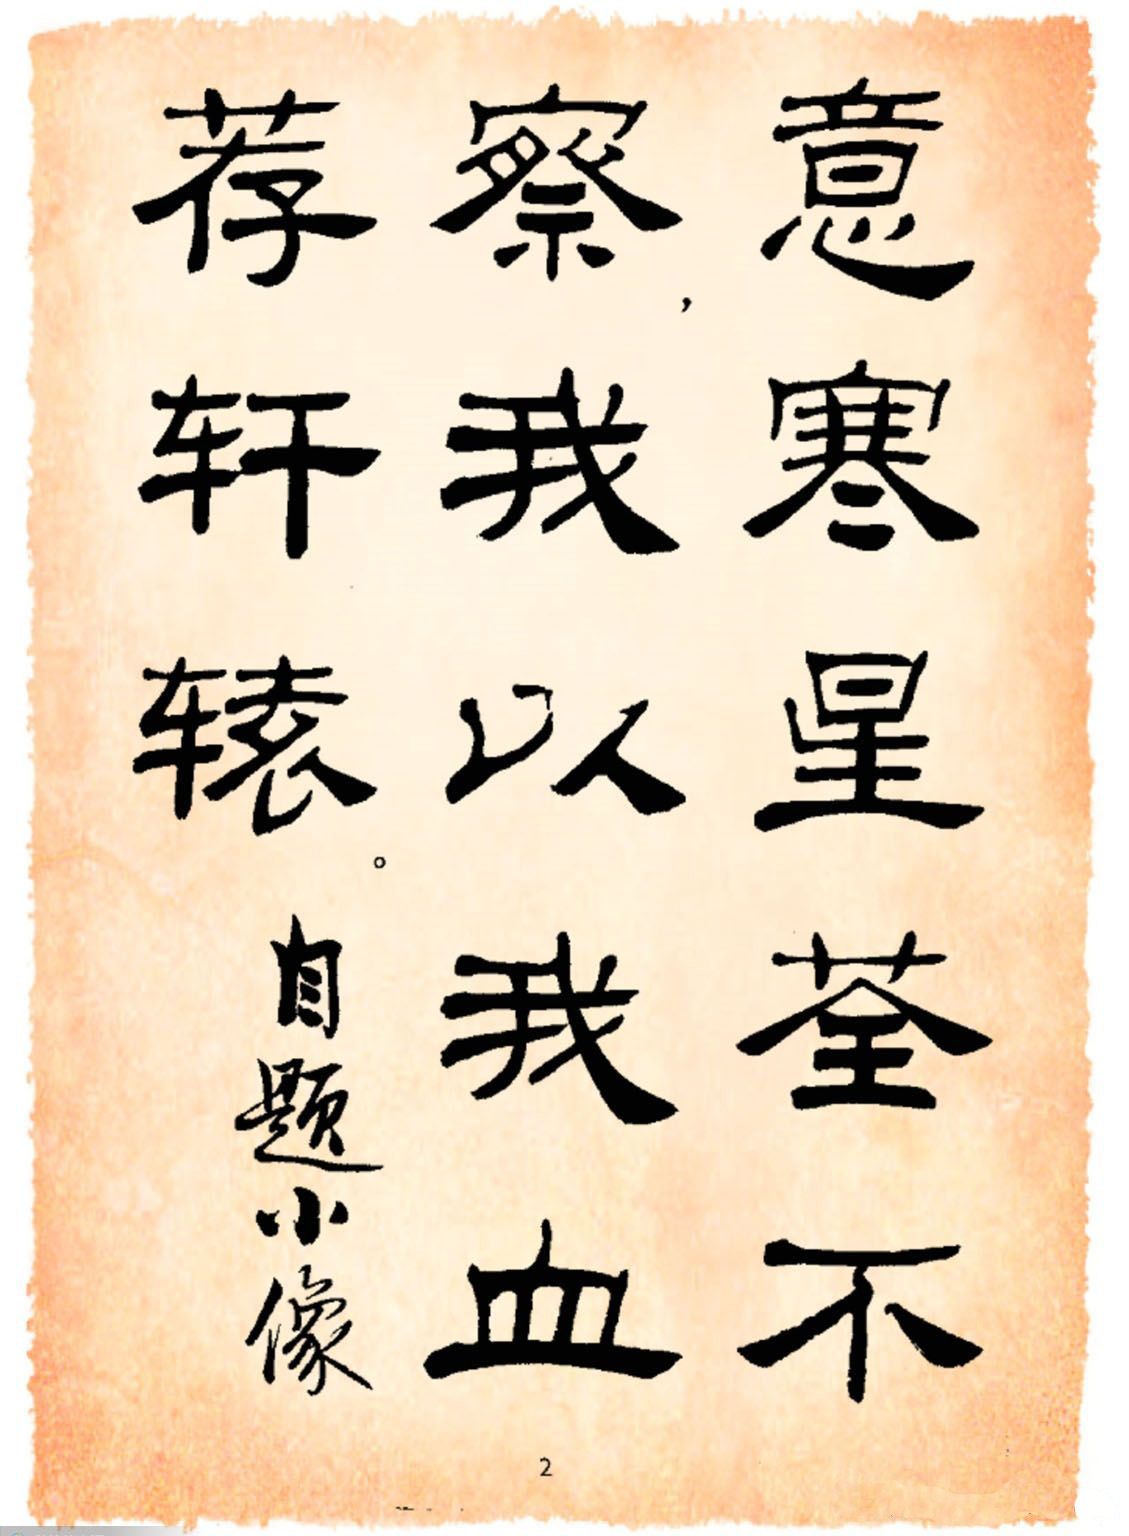 意寒星荃不
察，我以我血
荐轩辕。自题小像
2